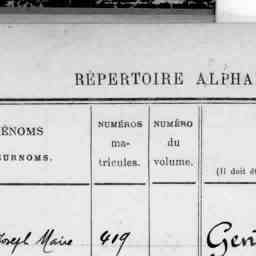 RÉPERTOIRE ALPHA
ÉNOMS
URNOMS.
NUMÉROS
ma-
tricules.
NUMÉRO
du
volume.
(Il doit êt
Joseph Marie 419
Gen